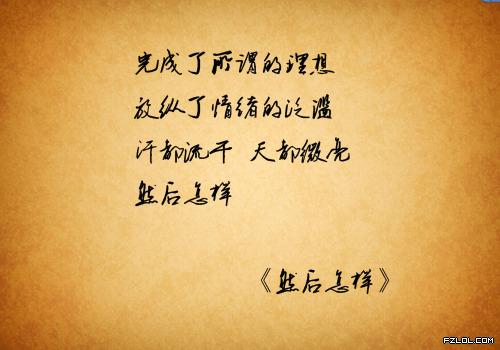 完成了所谓的理想
放纵了情绪的泛滥
汗都流干 天都微亮
然后怎样
《然后怎样》
FZLOL.COM